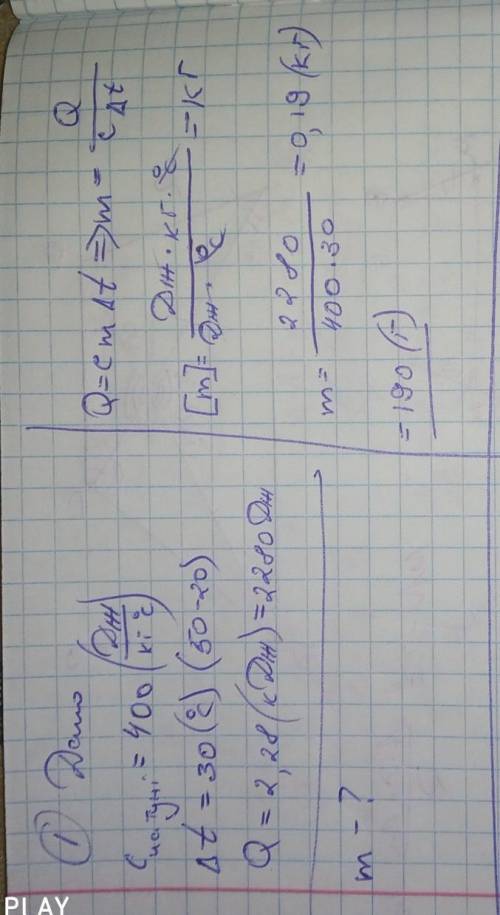 ① Дано
c латуні = 400 (Дж/кг°C)
Δt = 30 (°C) (50-20)
Q = 2,28 (кДж) = 2280 Дж
m - ?
Q = c m Δt => m = Q/cΔt
[m] = Дж · кг · °C/Дж · °C = кг
m = 2280/400·30 = 0,19 (кг)
= 190 (г)
PLAY